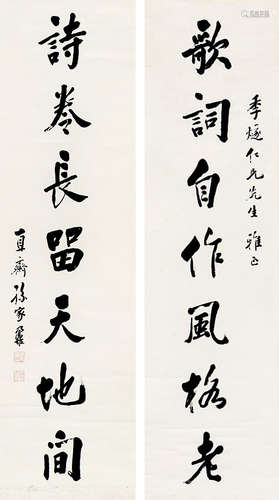 歌詞自作風格老
季燧仁兄先生雅正
詩卷長留天地間
直齋孫家鼐